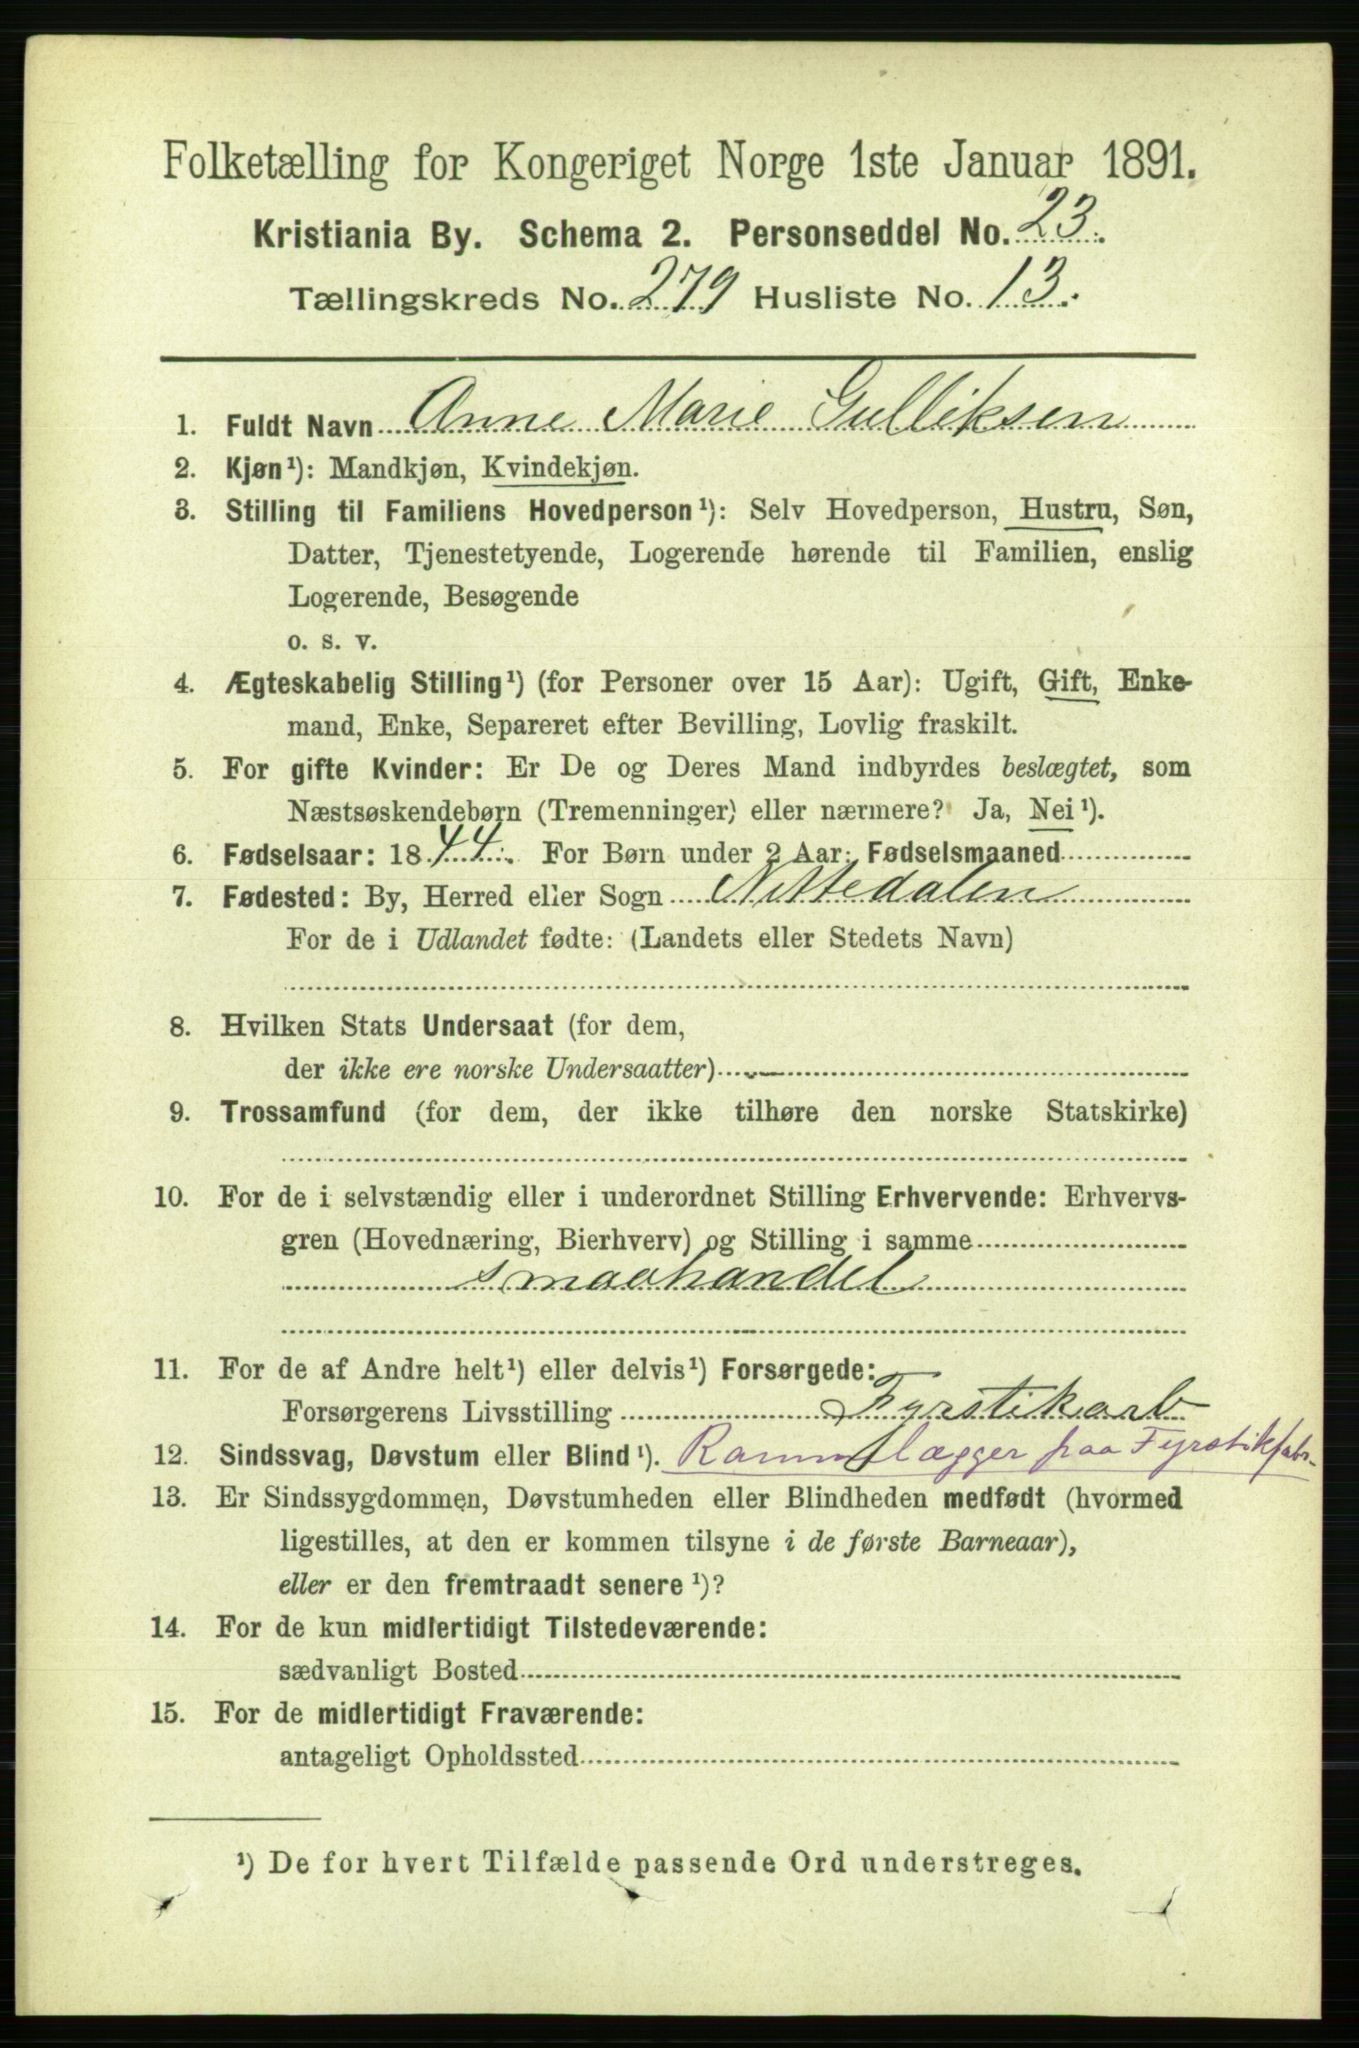 Folketælling for Kongeriget Norge 1ste Januar 1891.
Kristiania By. Schema 2. Personseddel No. 23.
Tællingskreds No. 279 Husliste No. 13.
1. Fuldt Navn Anne Marie Gulliksen
2. Kjøn¹): Mandkjøn, Kvindekjøn.
3. Stilling til Familiens Hovedperson¹): Selv Hovedperson, Hustru, Søn,
Datter, Tjenestetyende, Logerende hørende til Familien, enslig
Logerende, Besøgende
o. s. v.
4. Ægteskabelig Stilling¹) (for Personer over 15 Aar): Ugift, Gift, Enke-
mand, Enke, Separeret efter Bevilling, Lovlig fraskilt.
5. For gifte Kvinder: Er De og Deres Mand indbyrdes beslægtet, som
Næstsøskendebørn (Tremenninger) eller nærmere? Ja, Nei¹).
6. Fødselsaar: 1844. For Børn under 2 Aar: Fødselsmaaned
7. Fødested: By, Herred eller Sogn Nittedalen
For de i Udlandet fødte: (Landets eller Stedets Navn)
8. Hvilken Stats Undersaat (for dem,
der ikke ere norske Undersaatter)
9. Trossamfund (for dem, der ikke tilhøre den norske Statskirke)
10. For de i selvstændig eller i underordnet Stilling Erhvervende: Erhvervs-
gren (Hovednæring, Bierhverv) og Stilling i samme
smaahandel
11. For de af Andre helt¹) eller delvis¹) Forsørgede:
Forsørgerens Livsstilling Fyrstikarb
12. Sindssvag, Døvstum eller Blind¹). Rammlægger paa Fyrstikfabr.
13. Er Sindssygdommen, Døvstumheden eller Blindheden medfødt (hvormed
ligestilles, at den er kommen tilsyne i de første Barneaar),
eller er den fremtraadt senere¹)?
14. For de kun midlertidigt Tilstedeværende:
sædvanligt Bosted
15. For de midlertidigt Fraværende:
antageligt Opholdssted
¹) De for hvert Tilfælde passende Ord understreges.